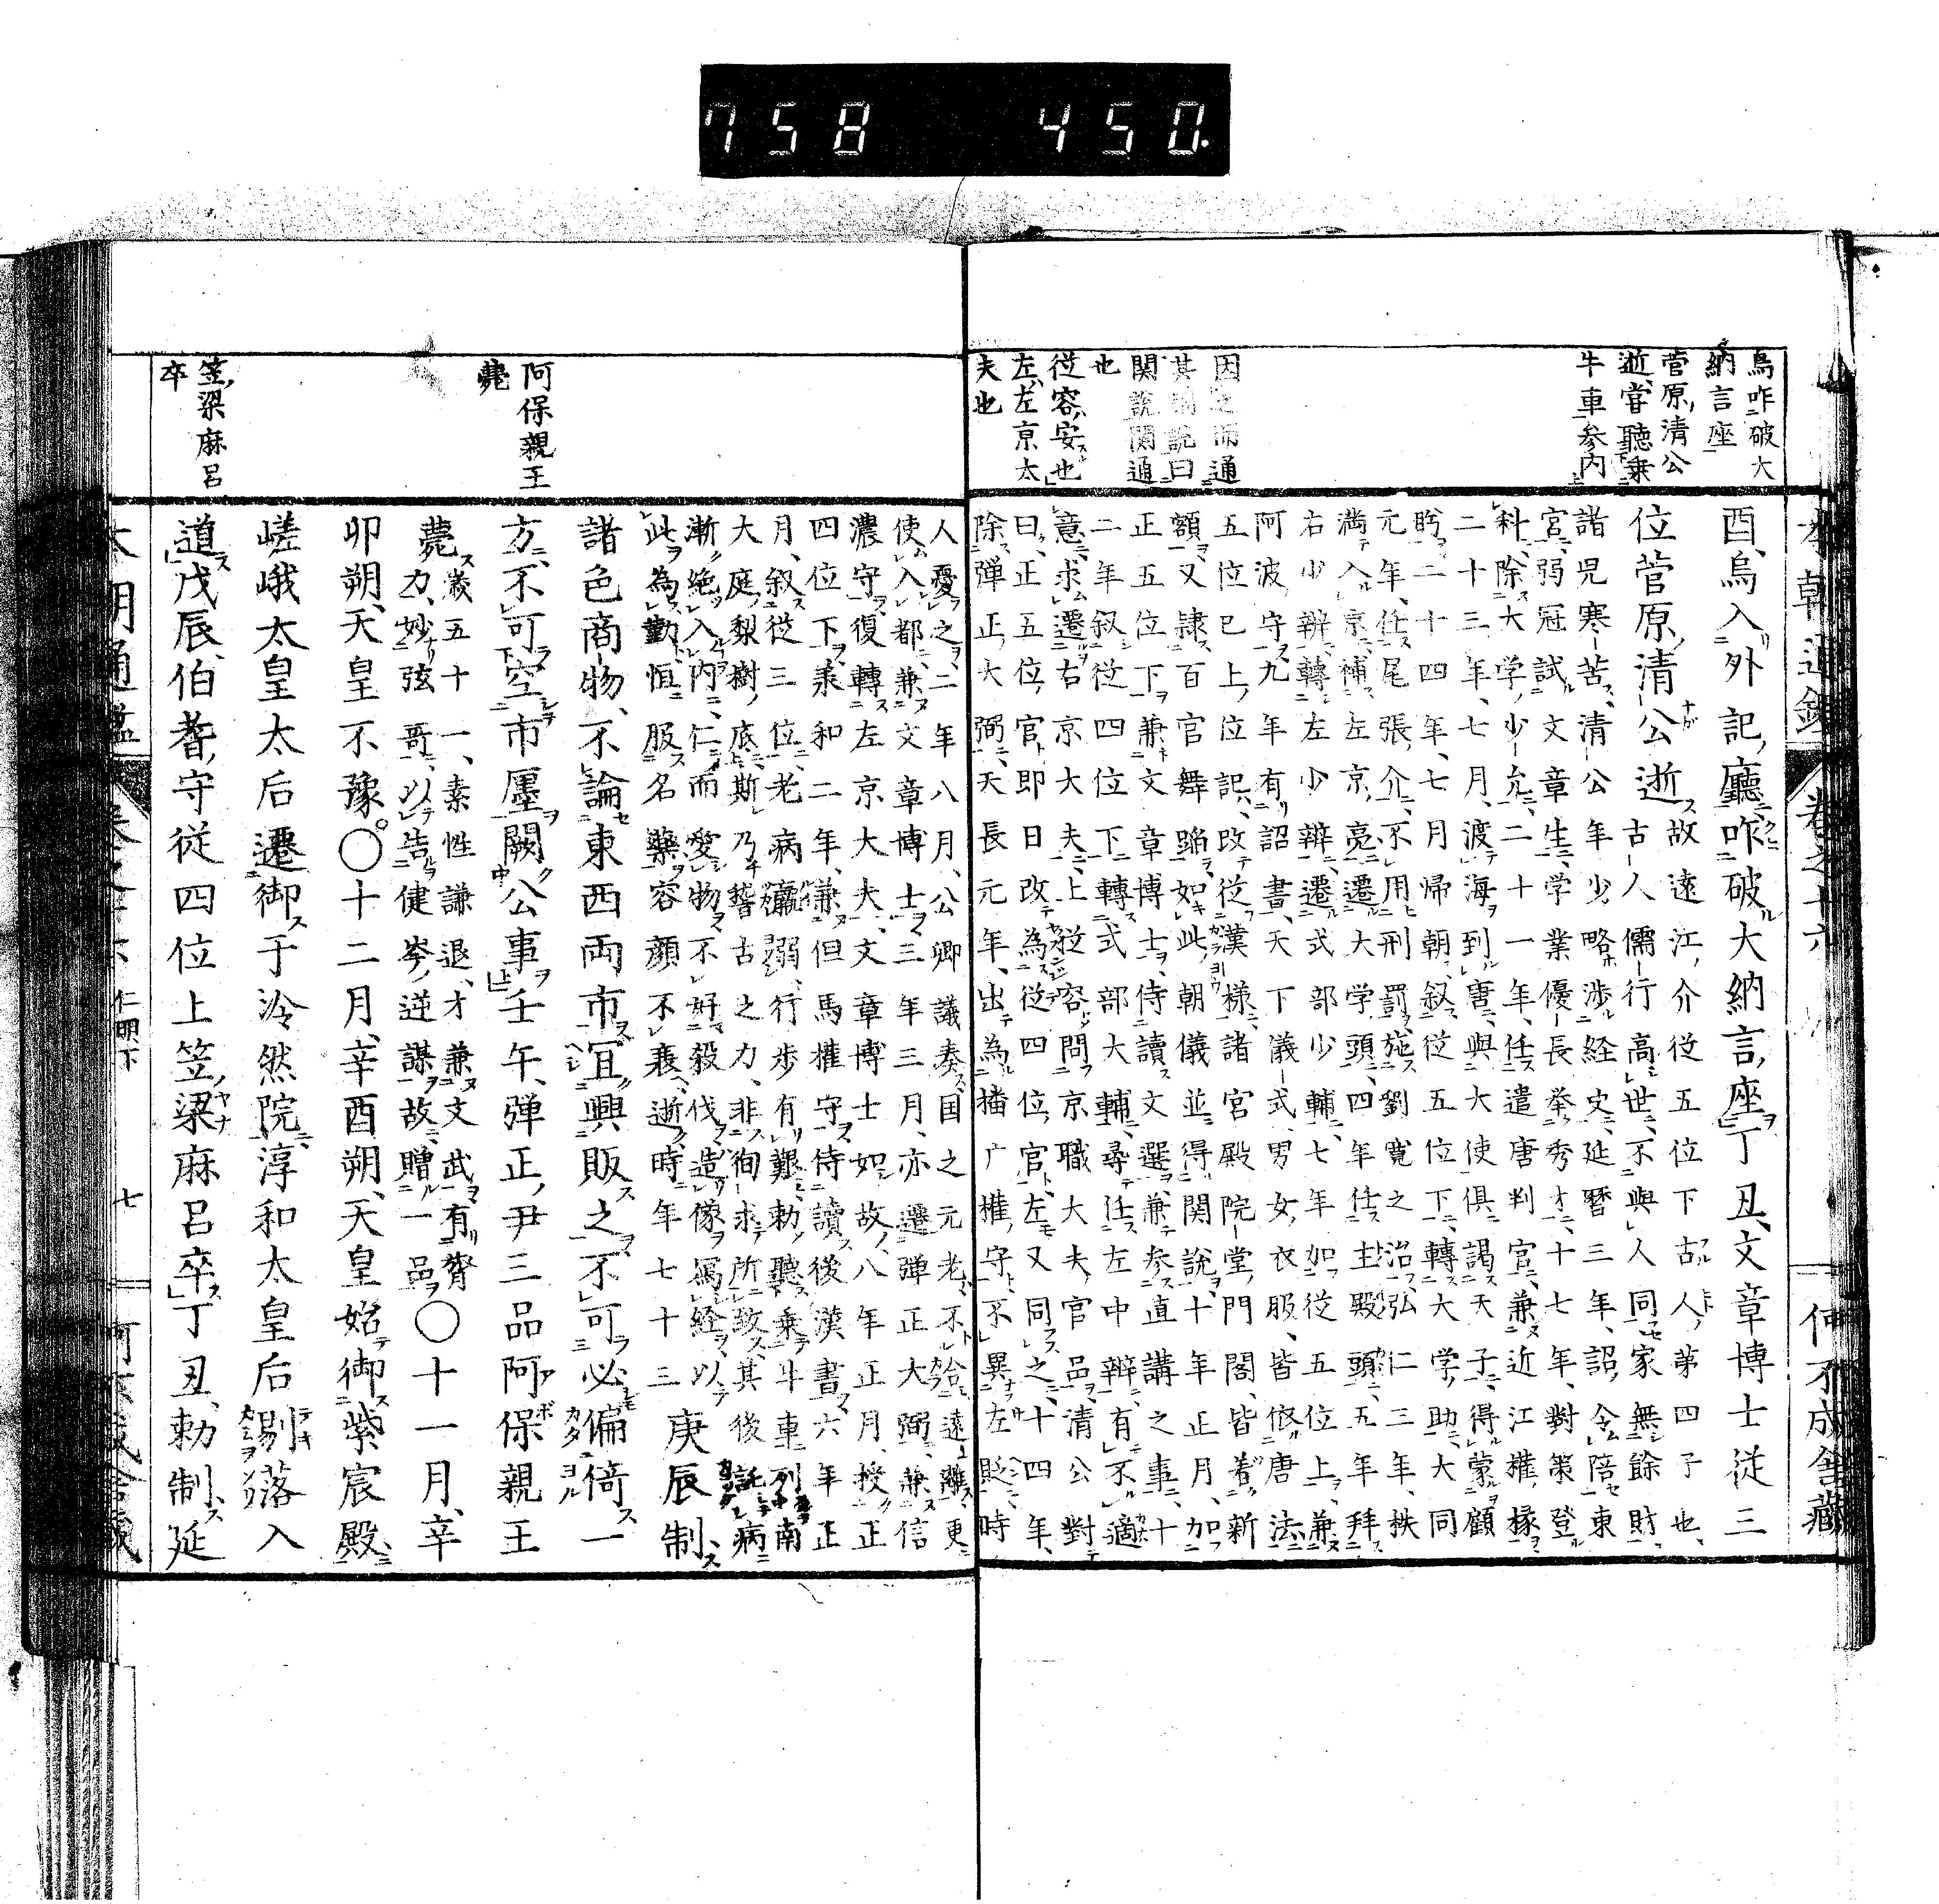 758 450.
烏咋破大
納言座
菅原清公
逝嘗聴乗
牛車参内
因之而通
関説関通
也
従容安也
左左京太
夫也
酉烏入外記廳咋破大納言座丁丑文章博士従三
位菅原清公逝故遠江介従五位下古人第四子也
古人儒行高世不與人同家無餘財
諸児寒苦清公年少略渉経史延暦三年詔令陪東
宮弱冠試文章生学業優長挙秀才十七年對策登
科除大学少允二十一年任遣唐判官兼近江権掾
二十三年七月渡海到唐與大使倶謁天子得蒙顧
眄二十四年七月帰朝叙従五位下轉大学助大同
元年任尾張介不用刑罰施劉寛之治弘仁三年秩
満入京補左京亮遷大学頭四年任主殿頭五年拜
右少辨轉左少辨遷式部少輔七年如従五位上兼
阿波守九年有詔書天下儀式男女衣服皆依唐法
五位已上位記改従漢様諸宮殿院堂門閣皆着新
額又隷百官舞蹈如此朝儀並得関説十年正月加
正五位下兼文章博士侍讀文選兼参直講之事十
二年叙従四位下轉式部大輔尋任左中辨有不適
意求遷右京大夫上従容問京職大夫官邑清公對
曰正五位官即日改為従四位官左又同之十四年
除弾正大弼天長元年出為播广権守不異左貶時
人憂之二年八月公卿議奏国之元老不合遠離更
使入都兼文章博士三年三月亦遷弾正大弼兼信
濃守復轉左京大夫文章博士如故八年正月授正
四位下承和二年兼但馬権守侍讀後漢書六年正
月叙従三位老病羸弱行歩有艱勅聴乗斗車列南
大庭梨樹底斯乃稽古之力非徇求所致其後託病
漸絶入内仁而愛物不好殺伐造像寫経以
此為勤恒服名藥容顔不衰逝時年七十三庚辰制
諸色商物不論東西両市冝興販之不可必偏倚一
方不可空市廛闕公事壬午弾正尹三品阿保親王
薨歳五十一素性謙退才兼文武有膂
力妙弦哥以告健岑逆謀故贈一品〇十一月辛
卯朔天皇不豫〇十二月辛酉朔天皇始御紫宸殿
嵯峨太皇太后遷御于冷然院淳和太皇后剔落入
道戊辰伯耆守従四位上笠梁麻呂卒丁丑勅制延
阿保親王
薨
笠梁麻呂
卒
仁明下
七